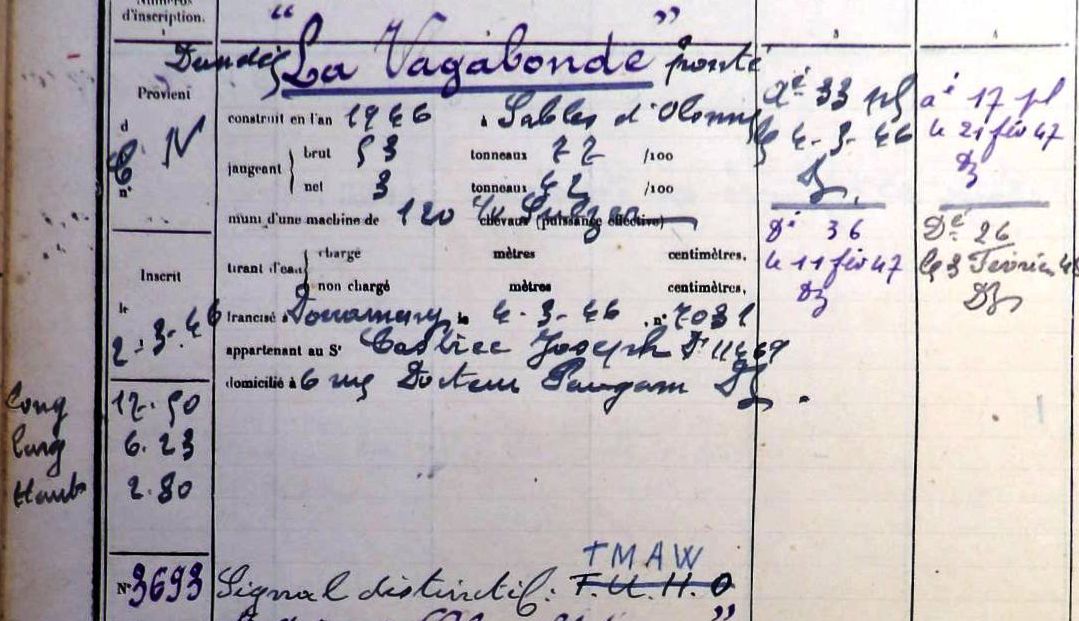 Numéros
d'inscription.
1
3
4
Dundée "La Vagabonde" ponté
Provient
d
C N
n°
construit en l'an 1946 à Sables d'Olonne
jaugeant
brut 53 tonneaux 22 /100
net 3 tonneaux 42 /100
muni d'une machine de 120 chevaux (puissance effective)
tirant d'eau
chargé mètres centimètres,
non chargé mètres centimètres,
Inscrit
le
2-3-46
francisé à Douarnenez le 4-3-46, n° 7031
appartenant au Sr Joseph Dz 11469
domicilié à 6 rue Docteur Paugam Dz.
Long 12.50
Larg 6.23
Haut 2.80
at 33 pl
le 4-3-46
Dz.
Dt 36
le 11 fév 47
Dz
at 17 pl
le 21 fév 47
Dz
Dt 26
le 3 Février
Dz
N° 3693
Signal distinctif: F.U.H.O
TMAW